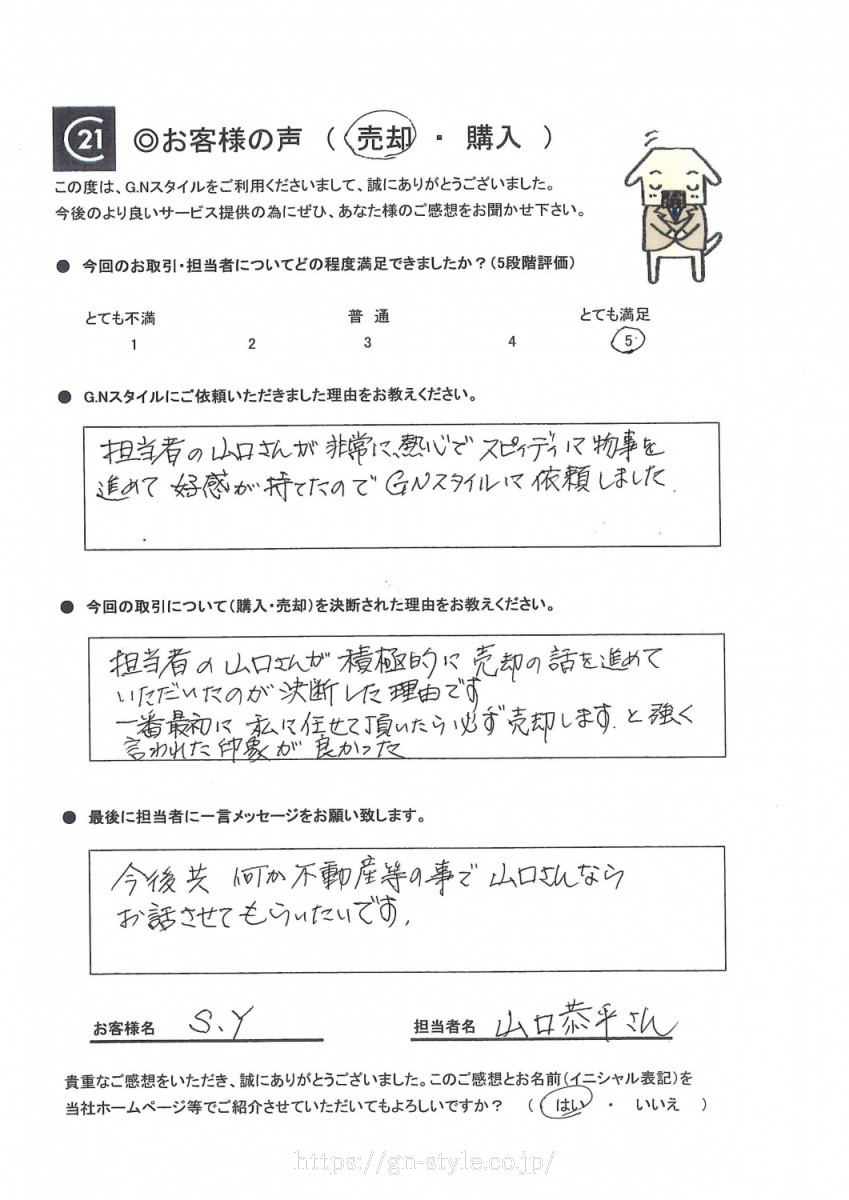 21 ◎お客様の声 ( 売却 ・ 購入 )
この度は、G.Nスタイルをご利用くださいまして、誠にありがとうございました。
今後のより良いサービス提供の為にぜひ、あなた様のご感想をお聞かせ下さい。
● 今回のお取引・担当者についてどの程度満足できましたか?(5段階評価)
とても不満 普 通 とても満足
1 2 3 4 5
● G.Nスタイルにご依頼いただきました理由をお教えください。
担当者の山口さんが 非常に、熱心で スピィディに 物事を
進めて 好感が 持てたので GNスタイルに 依頼しました.
● 今回の取引について(購入・売却)を決断された理由をお教えください。
担当者の 山口さんが 積極的に 売却の話を進めて
いただいたのが 決断した理由です
一番最初に 私に任せて頂いたら必ず売却します. と強く
言われた印象が 良かった
● 最後に担当者に一言メッセージをお願い致します。
今後共 何か不動産等の事で 山口さんなら
お話させてもらいたいです.
お客様名 S.Y 担当者名 山口恭平さん
貴重なご感想をいただき、誠にありがとうございました。このご感想とお名前(イニシャル表記)を
当社ホームページ等でご紹介させていただいてもよろしいですか? ( はい ・ いいえ )
https://gn-style.co.jp/